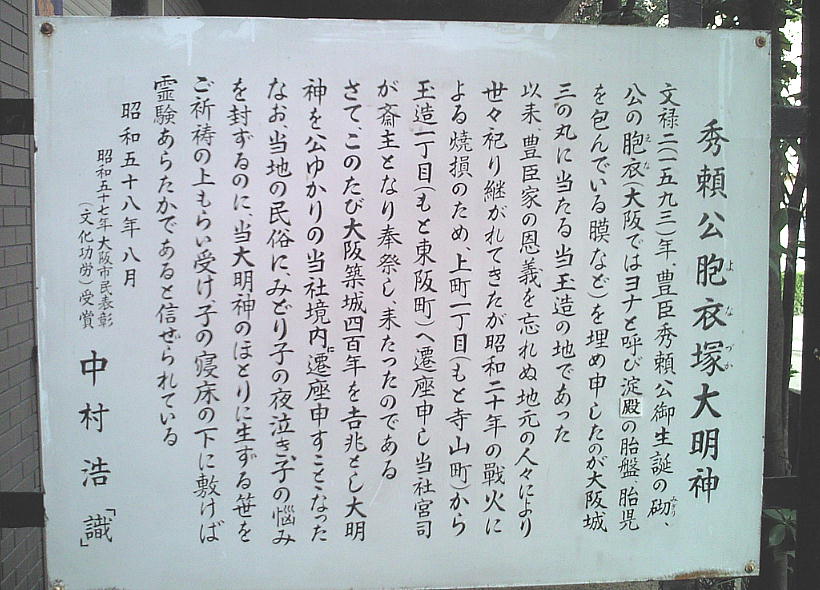 秀頼公胞衣塚大明神
よなづか
文禄二(一五九三)年、豊臣秀頼公御生誕の砌、
みぎり
公の胞衣(大阪ではヨナと呼び淀殿の胎盤、胎児
えな
を包んでいる膜など)を埋め申したのが大阪城
三の丸に当たる当玉造の地であった
以来、豊臣家の恩義を忘れぬ地元の人々により
世々祀り継がれてきたが昭和二十年の戦火に
よる焼損のため、上町一丁目(もと寺山町)から
玉造一丁目(もと東阪町)へ遷座申し当社宮司
が斎主となり奉祭し、来たったのである
さて、このたび大阪築城四百年を吉兆とし大明
神を公ゆかりの当社境内に遷座申すことなった
なお、当地の民俗に、みどり子の夜泣き、子の悩み
を封ずるのに、当大明神のほとりに生ずる笹を
ご祈祷の上もらい受け、子の寝床の下に敷けば
霊験あらたかであると信ぜられている
昭和五十八年八月
昭和五十七年大阪市民表彰
(文化功労)受賞
中村浩「識」